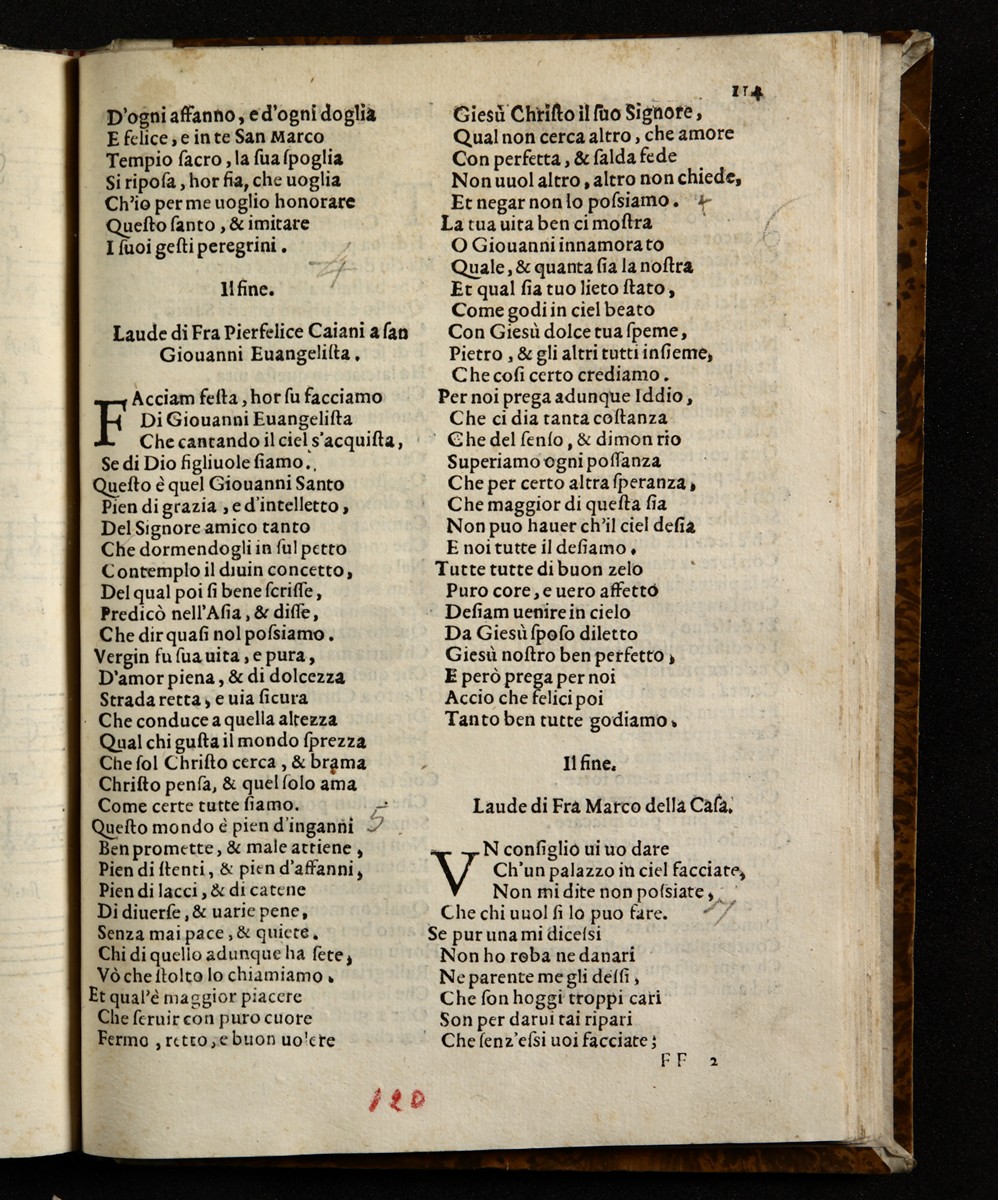 114
D'ogni affanno, e d'ogni doglia
E felice, e in te San Marco
Tempio ſacro, la ſua ſpoglia
Si ripoſa, hor ſia, che uoglia
Ch'io per me uoglio honorare
Queſto ſanto, & imitare
I ſuoi geſti peregrini.
4
Il fine.
Laude di Fra Pierfelice Caiani a ſan
Giouanni Euangeliſta.
FAcciam feſta, hor ſu facciamo
Di Giouanni Euangeliſta
Che cantando il ciel s'acquiſta,
Se di Dio figliuole ſiamo.
Queſto è quel Giouanni Santo
Pien di grazia, e d'intelletto,
Del Signore amico tanto
Che dormendogli in ſul petto
Contemplo il diuin concetto,
Del qual poi ſi bene ſcriſſe,
Predicò nell'Aſia, & diſſe,
Che dir quaſi nol poſsiamo.
Vergin fu ſua uita, e pura,
D'amor piena, & di dolcezza
Strada retta, e uia ſicura
Che conduce a quella altezza
Qual chi guſta il mondo ſprezza
Che ſol Chriſto cerca, & brama
Chriſto penſa, & quel ſolo ama
Come certe tutte ſiamo.
Queſto mondo è pien d'inganni 5
Ben promette, & male attiene,
Pien di ſtenti, & pien d'affanni,
Pien di lacci, & di catene
Di diuerſe, & uarie pene,
Senza mai pace, & quiete.
Chi di quello adunque ha ſete,
Vò che ſtolto lo chiamiamo.
Et qual'è maggior piacere
Che ſeruir con puro cuore
Fermo, retto, e buon uolere
Gieſù Chriſto il ſuo Signore,
Qual non cerca altro, che amore
Con perfetta, & ſalda fede
Non uuol altro, altro non chiede,
Et negar non lo poſsiamo.
6
La tua uita ben ci moſtra
O Giouanni innamorato
Quale, & quanta ſia la noſtra
Et qual ſia tuo lieto ſtato,
Come godi in ciel beato
Con Gieſù dolce tua ſpeme,
Pietro, & gli altri tutti inſieme,
Che coſi certo crediamo.
Per noi prega adunque Iddio,
Che ci dia tanta coſtanza
Che del ſenſo, & dimon rio
Superiamo ogni poſſanza
Che per certo altra ſperanza,
Che maggior di queſta ſia
Non puo hauer ch'il ciel deſia
E noi tutte il deſiamo.
Tutte tutte di buon zelo
Puro core, e uero affetto
Deſiam uenire in cielo
Da Gieſù ſpoſo diletto
Gieſù noſtro ben perfetto,
E però prega per noi
Accio che felici poi
Tanto ben tutte godiamo.
Il fine.
Laude di Fra Marco della Caſa.
VN conſiglio ui uo dare
Ch'un palazzo in ciel facciate,
Non mi dite non poſsiate,
Che chi uuol ſi lo puo fare.
Se pur una mi diceſsi
Non ho roba ne danari
Ne parente me gli deſſi,
Che ſon hoggi troppi cari
Son per darui tai ripari
Che ſenz'eſsi uoi facciate;
FF 2
120